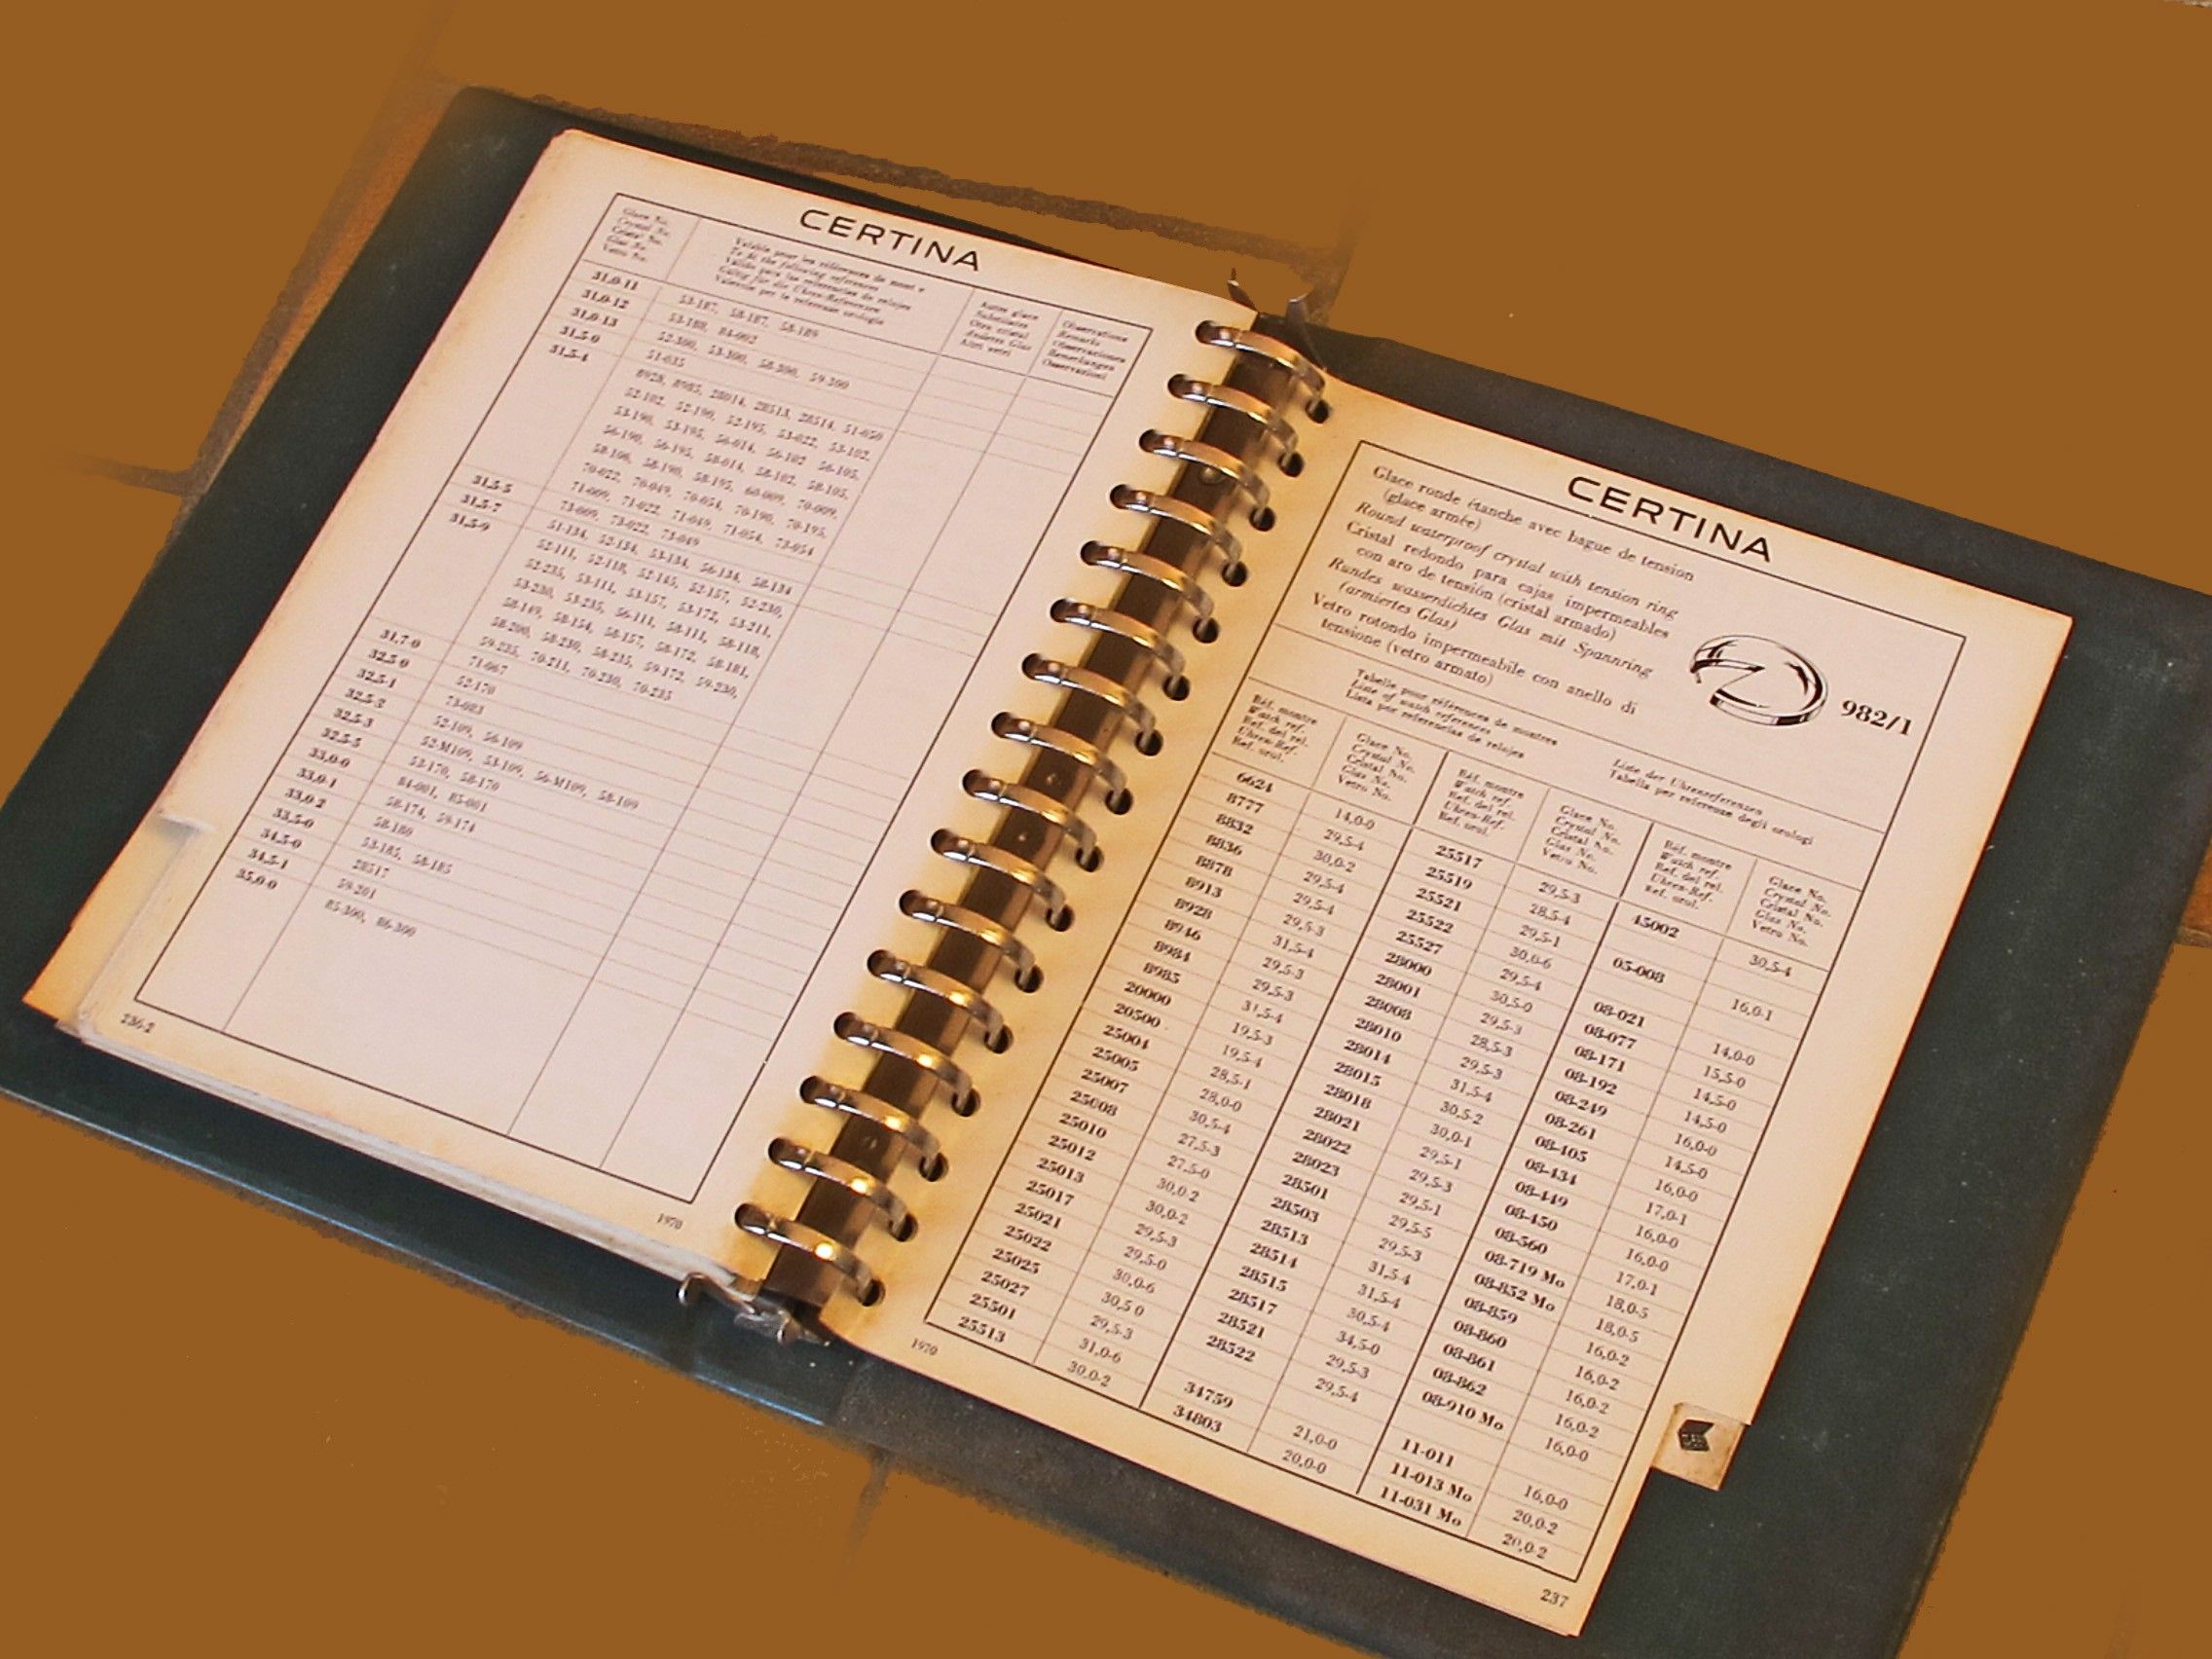 CERTINA
Glace No.
Crystal No.
Cristal No.
Glas No.
Vetro No.
Valable pour les références de montre
To fit the following references
Válido para las referencias de relojes
Gültig für die Uhren-Referenzen
Valevole per le referenze orologio
Autres glace
Substitutes
Otro cristal
Anderes Glas
Altri vetri
Observations
Remarks
Observaciones
Bemerkungen
Osservazioni
31,0-11 53-187, 58-187, 58-189
31,0-12 53-188, 84-002
31,0-13 52-300, 53-300, 58-300, 59-300
31,5-0 51-035
31,5-4 8928, 8985, 28014, 28513, 28514, 51-050
52-102, 52-190, 52-195, 53-022, 53-102,
53-190, 53-195, 56-014, 56-102 56-105,
56-190, 56-195, 58-014, 58-102, 58-105,
58-106, 58-190, 58-195, 60-009, 70-009,
70-022, 70-049, 70-054, 70-190, 70-195,
71-009, 71-022, 71-049, 71-054, 73-054
31,5-5 73-009, 73-022, 73-049
31,5-7 51-134, 52-134, 53-134, 56-134, 58-134
31,5-9 52-111, 52-118, 52-145, 52-157, 52-230,
52-235, 53-111, 53-157, 53-172, 53-211,
53-230, 53-235, 56-111, 58-111, 58-118,
58-149, 58-154, 58-157, 58-172, 58-181,
58-200, 58-230, 58-235, 59-172, 59-230,
59-235, 70-211, 70-230, 70-235
31,7-0 71-067
32,5 0 52-170
32,5-1 73-083
32,5-2 52-109, 56-109
32,5-3 52-M109, 53-109, 56-M109, 58-109
32,5-5 53-170, 58-170
33,0-0 84-001, 85-001
33,0-1 58-174, 59-174
33,0-2 58-180
33,5-0 53-185, 58-185
34,5-0 28517
34,5-1 59-201
35,0-0 85-300, 86-300
236-2
1970
CERTINA
Glace ronde étanche avec bague de tension
(glace armée)
Round waterproof crystal with tension ring
Cristal redondo para cajas impermeables
con aro de tensión (cristal armado)
Rundes wasserdichtes Glas mit Spannring
(armiertes Glas)
Vetro rotondo impermeabile con anello di
tensione (vetro armato)
982/1
Tabelle pour références de montres
Liste of watch references
Lista por referencias de relojes
Liste der Uhrenreferenzen
Tabella per referenze degli orologi
Réf. montre
Watch ref.
Ref. del rel.
Uhren-Ref.
Ref. orol.
Glace No.
Crystal No.
Cristal No.
Glas No.
Vetro No.
Réf. montre
Watch ref.
Ref. del rel.
Uhren-Ref.
Ref. orol.
Glace No.
Crystal No.
Cristal No.
Glas No.
Vetro No.
Réf. montre
Watch ref.
Ref. del rel.
Uhren-Ref.
Ref. orol.
Glace No.
Crystal No.
Cristal No.
Glas No.
Vetro No.
6624 14,0-0
8777 29,5-4
8832 30,0-2
8836 29,5-4
8878 29,5-4
8913 29,5-3
8928 31,5-4
8946 29,5-3
8984 29,5-3
8985 31,5-4
20000 19,5-3
20500 19,5-4
25004 28,5-1
25005 28,0-0
25007 30,5-4
25008 27,5-3
25010 27,5-0
25012 30,0-2
25013 30,0-2
25017 29,5-3
25021 29,5-0
25022 30,0-6
25025 30,5 0
25027 29,5-3
25501 31,0-6
25513 30,0-2
25517 29,5-3
25519 28,5-4
25521 29,5-1
25522 30,0-6
25527 29,5-4
28000 30,5-0
28001 29,5-3
28008 28,5-3
28010 29,5-3
28014 31,5-4
28015 30,5-2
28018 30,0-1
28021 29,5-1
28022 29,5-3
28023 29,5-1
28501 29,5-5
28503 29,5-3
28513 31,5-4
28514 31,5-4
28515 30,5-4
28517 34,5-0
28521 29,5-3
28522 29,5-4
34759 21,0-0
34803 20,0-0
45002 30,5-4
05-008 16,0-1
08-021
08-077
08-171
08-192
08-249
08-261
08-405
08-434
08-449
08-450
08-560
08-719 Mo
08-852 Mo
08-859
08-860
08-861
08-862
08-910 Mo
14,0-0
15,5-0
14,5-0
14,5-0
16,0-0
14,5-0
16,0-0
17,0-1
16,0-0
17,0-1
18,0-5
18,0-5
16,0-2
16,0-2
16,0-2
16,0-2
16,0-0
11-011 16,0-0
11-013 Mo 20,0-2
11-031 Mo 20,0-2
1970
237